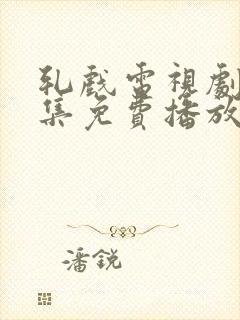 乳戲電視劇
集免費播放
潘銳